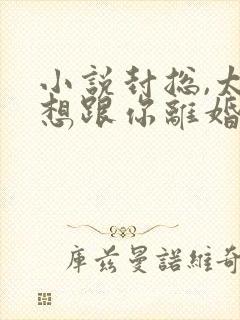 小說封总,太
想跟你離婚
库兹曼諾維奇